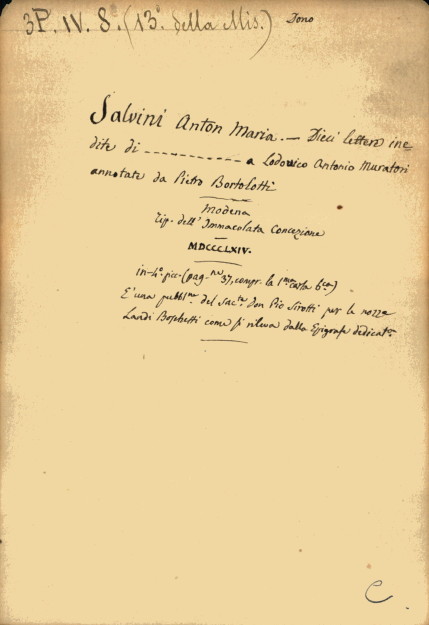 3P. IV. 8. (13ª della Mis.) Dono
Salvini Anton Maria. — Dieci lettere ine-
dite di ----------- a Lodovico Antonio Muratori
annotate da Pietro Bortolotti
Modena
Tip. dell' Immacolata Concezione
MDCCCLXIV.
in-4º picc. (pag.ne 37, compr. la 1ma carta bca)
E' una pubblne del sacte Don Pio Sirotti per le nozze
Landi Boschetti come si rileva dalla Epigrafe dedicata
C